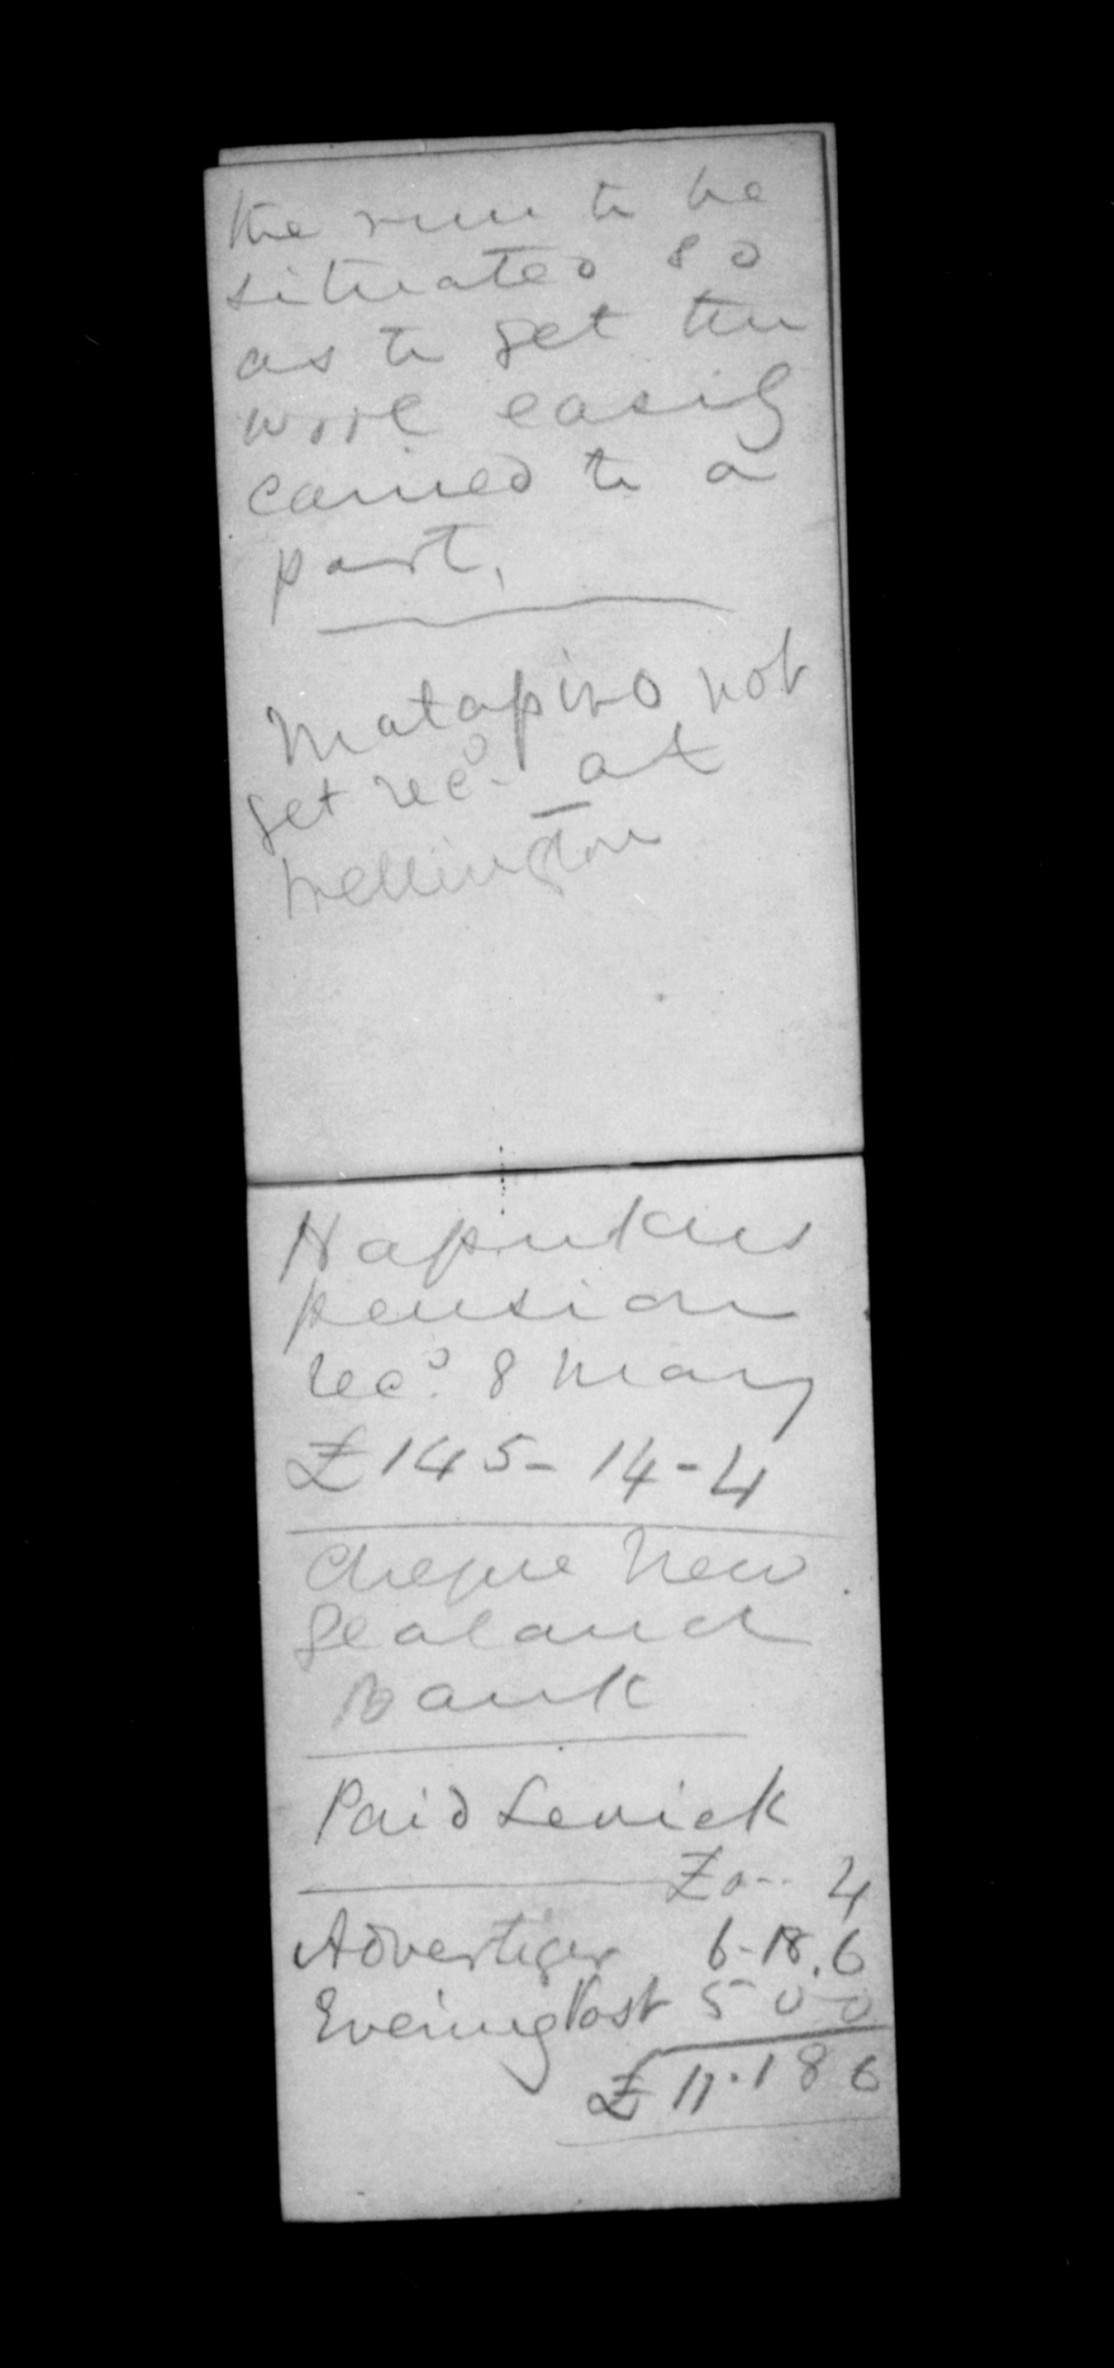 the run to be
situated so
as to get the
wool easily
carried to a
port.
Matapiro not
get recd. at
Wellington
Hapukus
pension
recd. 8 May
£145-14-4
Cheque New
Zealand
Bank
Paid Levick
£0-- 4
Advertiser 6-18.6
Evening Post 5 0 0
£11.18 6